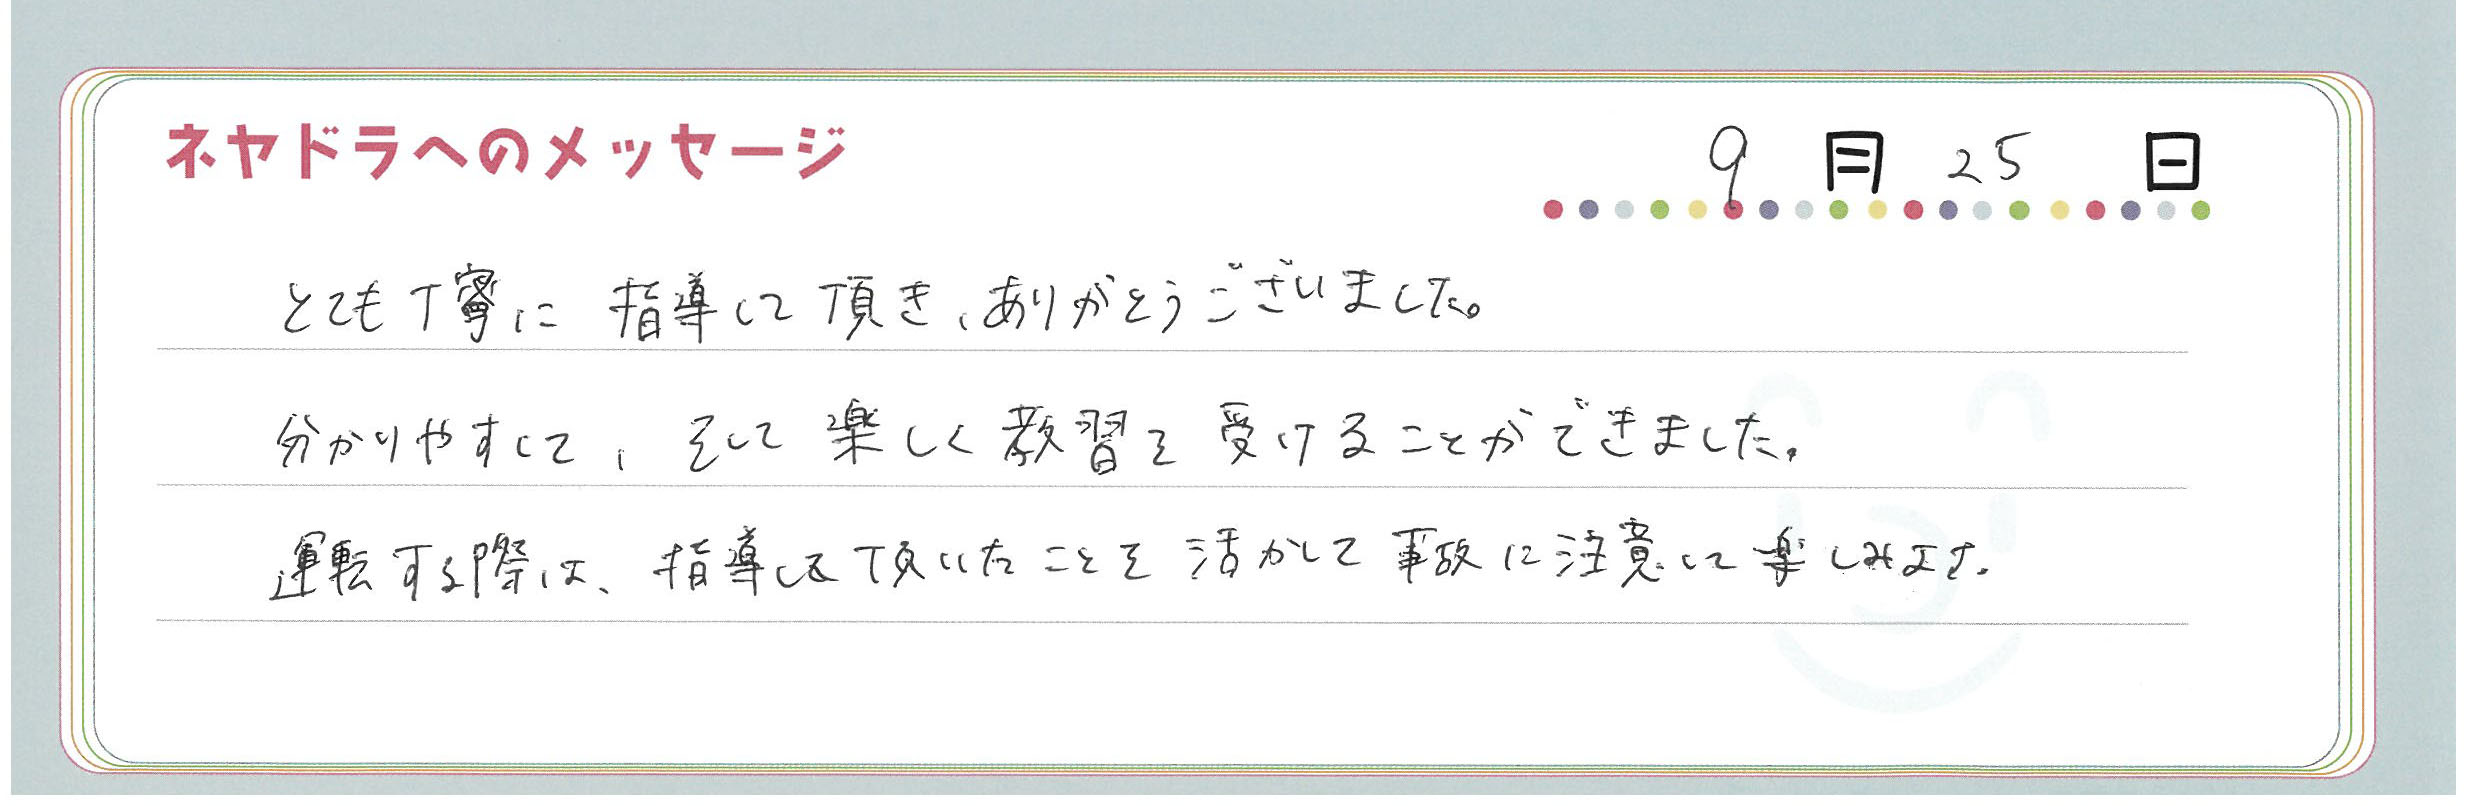 ネヤドラへのメッセージ
9月25日
とても丁寧に指導して頂き、ありがとうございました。
分かりやすくて、そして楽しく教習を受けることができました。
運転する際は、指導して頂いたことを活かして事故に注意して楽しみます。